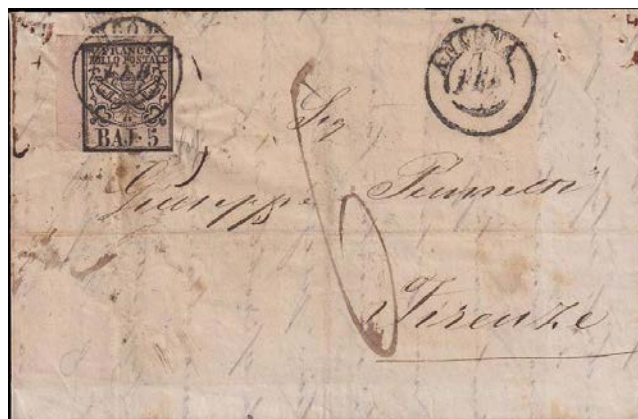 FRANCO
BOLLO POSTALE
BAJ. 5
ANCONA
1
FEB
Sig
Giuseppe
Firenze